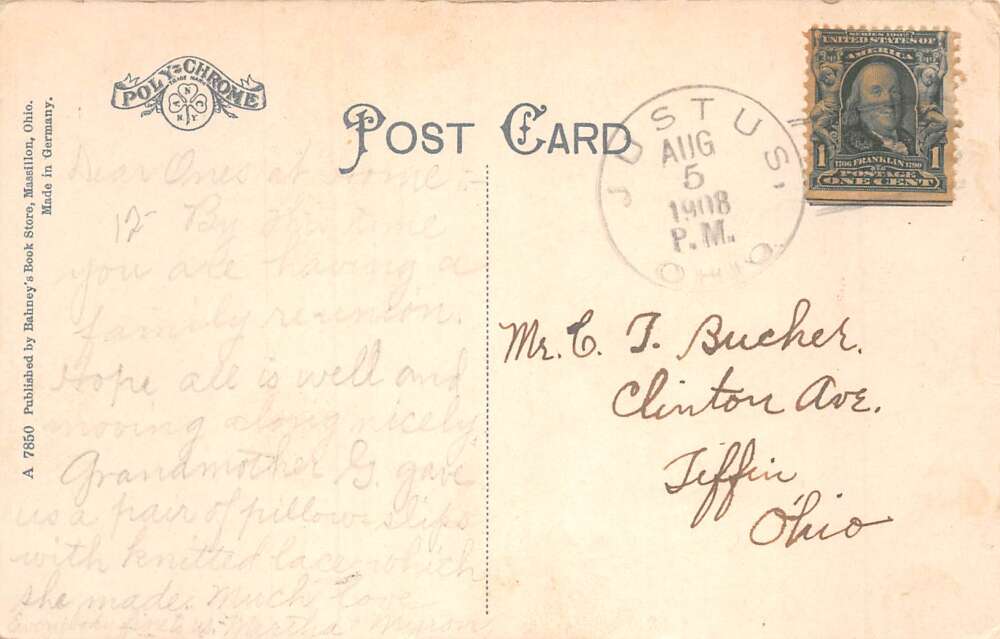 A 7850 Published by Bahney's Book Store, Massillon, Ohio.
Made in Germany.
POLY=CHROME
TRADE MARK
A N C N Y
POST CARD
JUSTUS,
AUG
5
1908
P.M.
OHIO
SERIES 1902
UNITED STATES OF
AMERICA
1 1706 FRANKLIN 1790 1
POSTAGE
ONE CENT
Dear Ones at Home :-
By this time
you are having a
family reunion.
Hope all is well and
moving along nicely
Grandmother G. gave
us a pair of pillow slips
with knitted lace which
she made. Much love
Martha + Myron
Mr. C. T. Bucher.
Clinton Ave.
Tiffin
Ohio